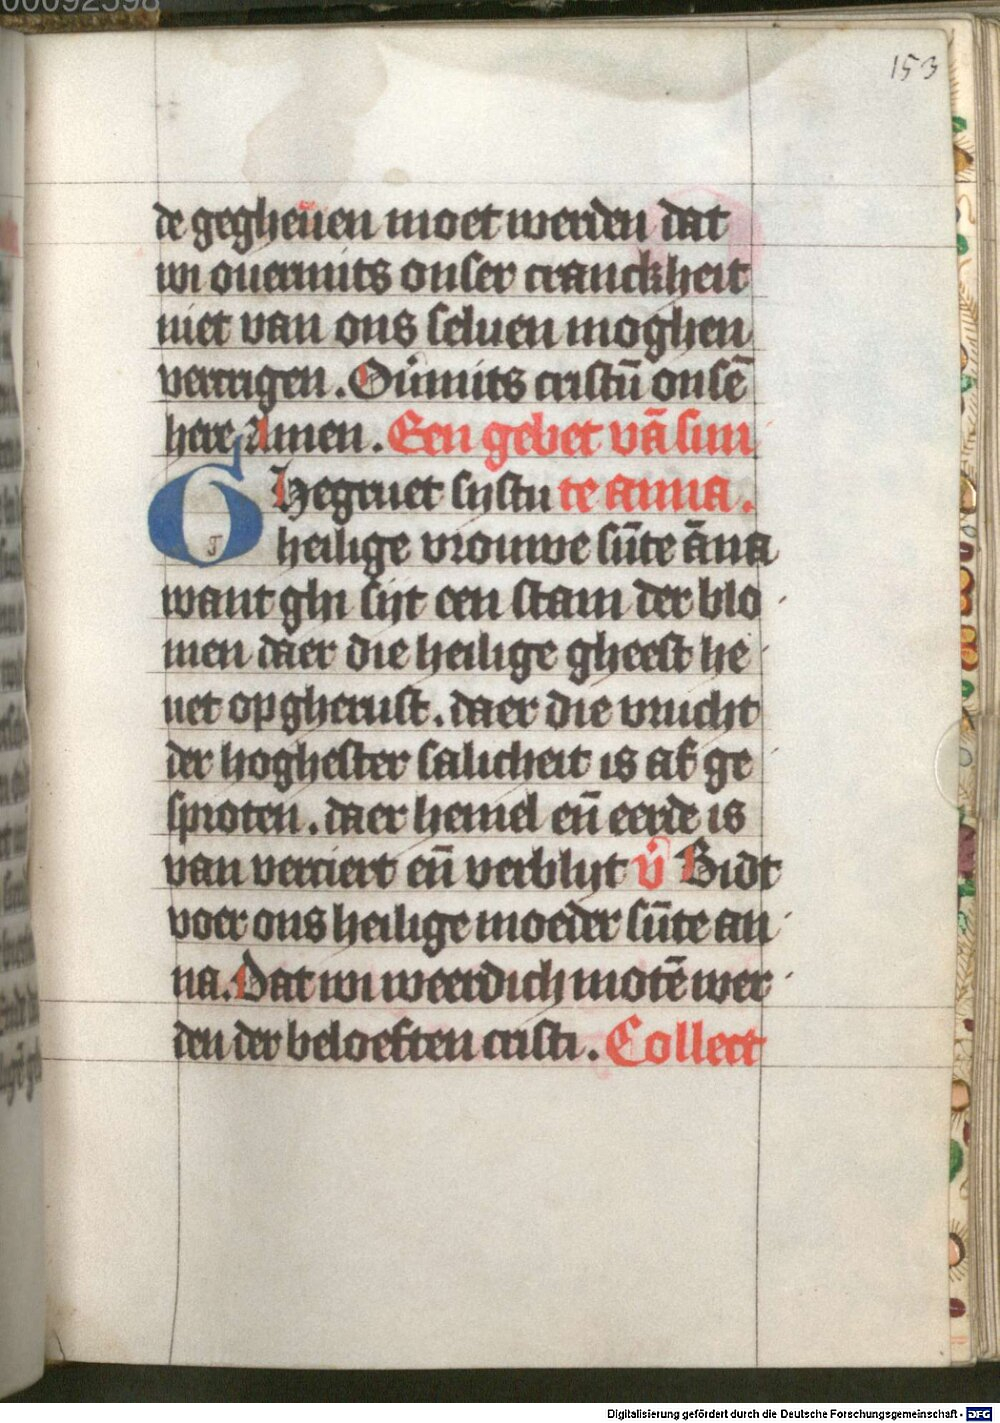 00092598
153
de gegheuen moet werden dat
wi ouermits onser cranckheit
niet van ons seluen moghen
vercrigen. Ou͛mits cristū onsē
here Amen. Een gebet vā sun
GHegruet sijstu te anna.
heilige vrouwe sūte āna
want ghi sijt een stam der blo
men daer die heilige gheest he
uet op gherust. daer die vrucht
der hoghester salicheit is af ge
sproten. daer hemel en̄ eerde is
van verciert en̄ verblijt v̄ Bidt
voer ons heilige moeder sūte an
na. Dat wi weerdich motē wer
den der beloeften cristi. Collect
Digitalisierung gefördert durch die Deutsche Forschungsgemeinschaft - DFG